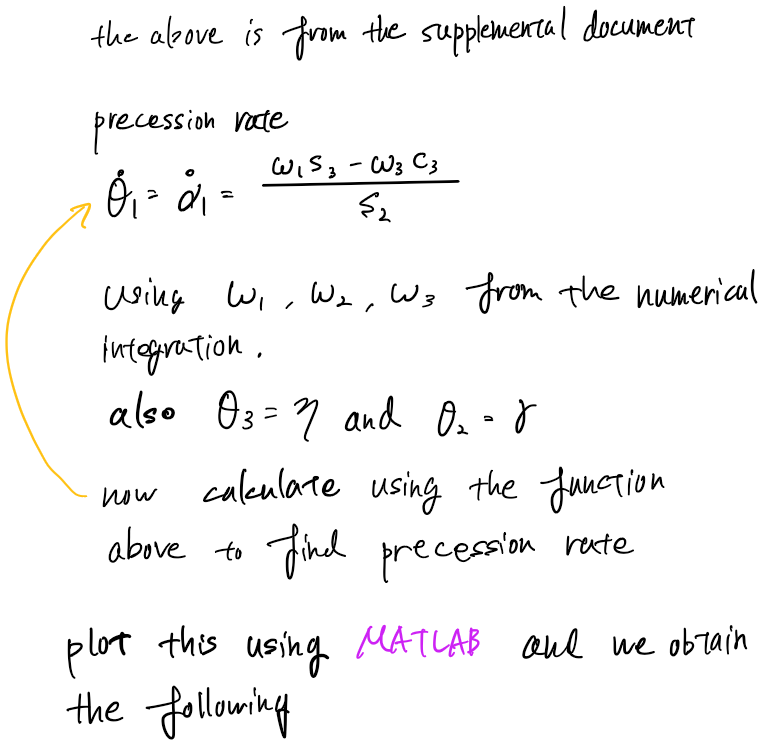 the above is from the supplemental document
precession rate
θ̇₁ = α̇₁ = (ω₁s₃ - ω₃c₃) / s₂
using ω₁, ω₂, ω₃ from the numerical
integration.
also θ₃ = η and θ₂ = γ
now calculate using the function
above to find precession rate
plot this using MATLAB and we obtain
the following